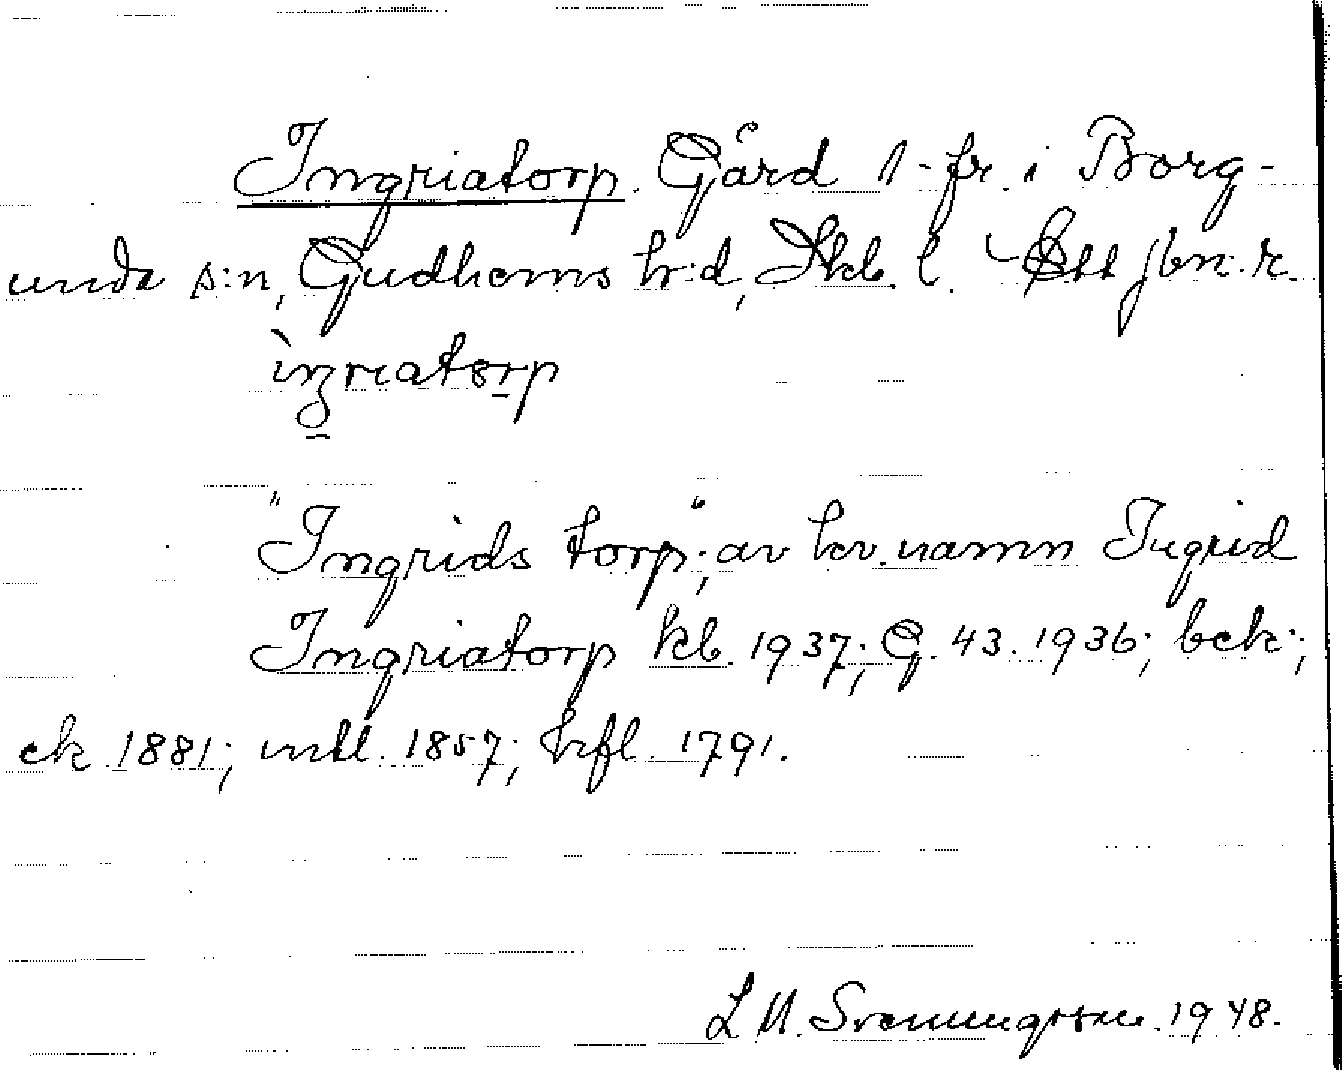 Ingriatorp. Gård 1-fr. i Borg-
unda s:n, Gudhems h:d, Skb. l. Ett jbn:r.
ìŋriatorp
"Ingrids torp"; av kv.namn Ingrid
Ingriatorp kb. 1937; G. 43. 1936; bek:;
ek 1881; mtl. 1857; hfl. 1791.
L M. Svenungsson. 1948.